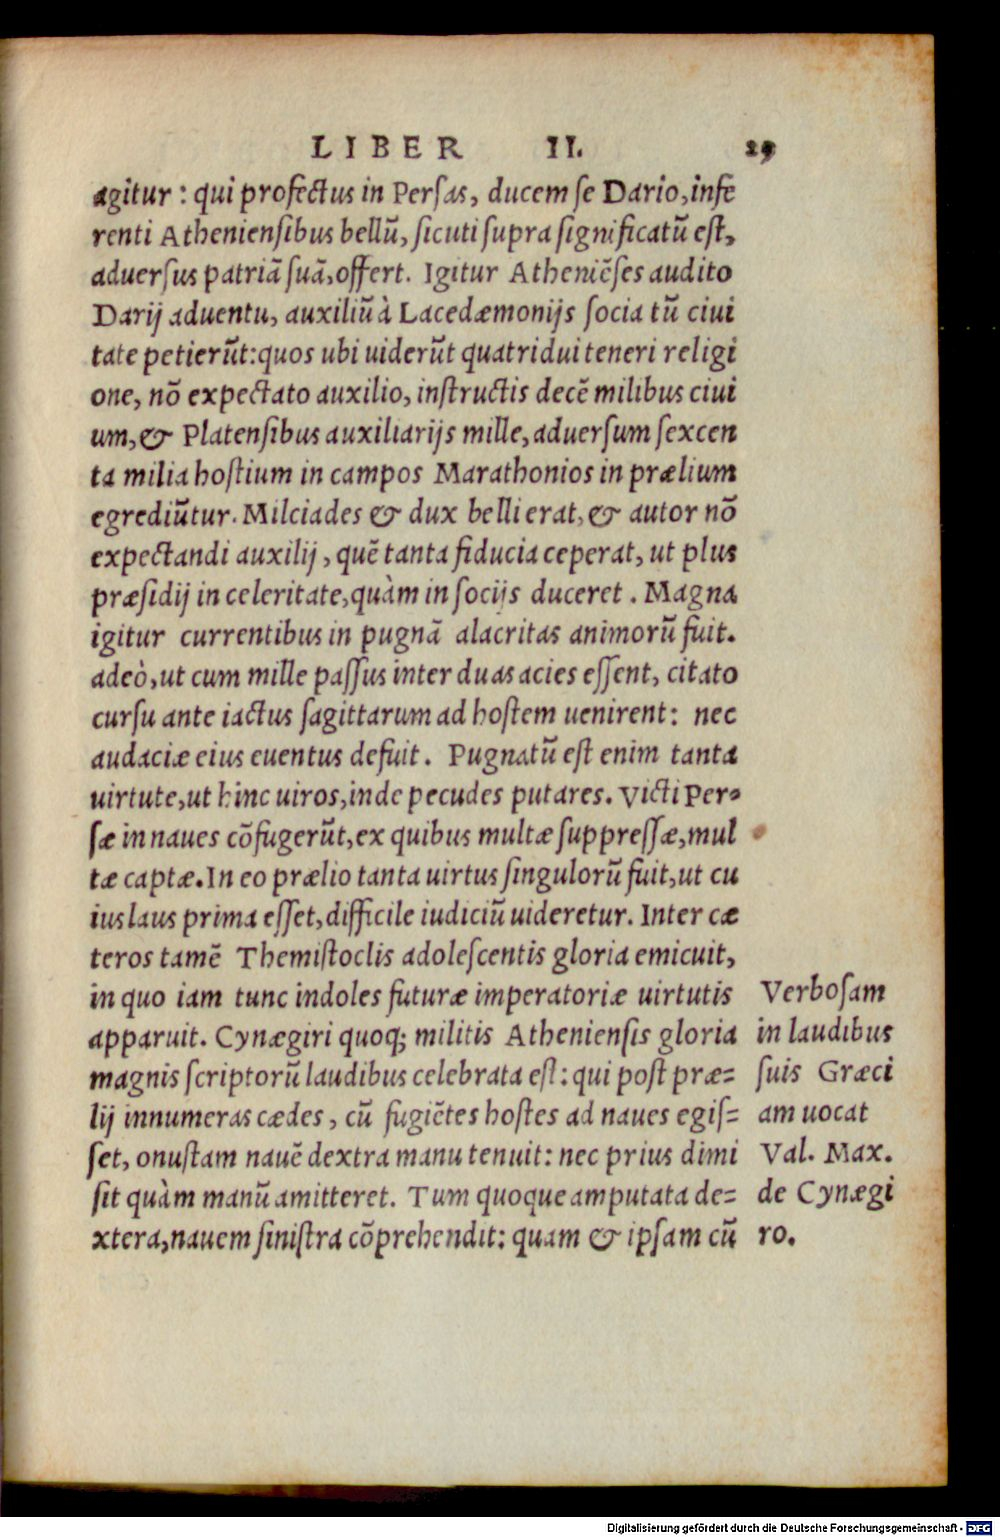 LIBER II. 29
agitur: qui profectus in Persas, ducem se Dario, infe
renti Atheniensibus bellū, sicuti supra significatū est,
aduersus patriā suā, offert. Igitur Atheniēses audito
Darij aduentu, auxiliū à Lacedæmonijs socia tū ciui
tate petierūt: quos ubi uiderūt quatridui teneri religi
one, nō expectato auxilio, instructis decē milibus ciui
um, & Platensibus auxiliarijs mille, aduersum sexcen
ta milia hostium in campos Marathonios in prælium
egrediūtur. Milciades & dux belli erat, & autor nō
expectandi auxilij, quē tanta fiducia ceperat, ut plus
præsidij in celeritate, quàm in socijs duceret. Magna
igitur currentibus in pugnā alacritas animorū fuit.
adeò, ut cum mille passus inter duas acies essent, citato
cursu ante iactus sagittarum ad hostem uenirent: nec
audaciæ eius euentus defuit. Pugnatū est enim tanta
uirtute, ut hinc uiros, inde pecudes putares. Victi Per-
sæ in naues cōfugerūt, ex quibus multæ suppressæ, mul
tæ captæ. In eo prælio tanta uirtus singulorū fuit, ut cu
ius laus prima esset, difficile iudiciū uideretur. Inter cæ
teros tamē Themistoclis adolescentis gloria emicuit,
in quo iam tunc indoles futuræ imperatoriæ uirtutis
apparuit. Cynægiri quoq; militis Atheniensis gloria
magnis scriptorū laudibus celebrata est: qui post præ-
lij innumeras cædes, cū fugiētes hostes ad naues egis-
set, onustam nauē dextra manu tenuit: nec prius dimi
sit quàm manū amitteret. Tum quoque amputata de-
xtera, nauem sinistra cōprehendit: quam & ipsam cū
Verbosam
in laudibus
suis Græci
am uocat
Val. Max.
de Cynægi
ro.
Digitalisierung gefördert durch die Deutsche Forschungsgemeinschaft - DFG